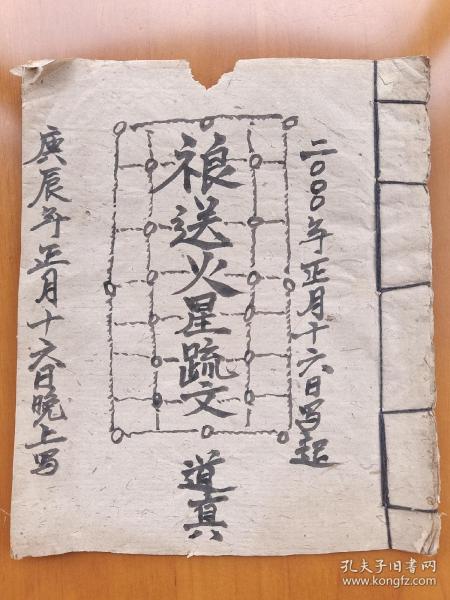 二〇〇〇年正月十六日写起
祿送火星疏文
道真
庚辰年正月十六日晚上写
孔夫子旧书网
www.kongfz.com